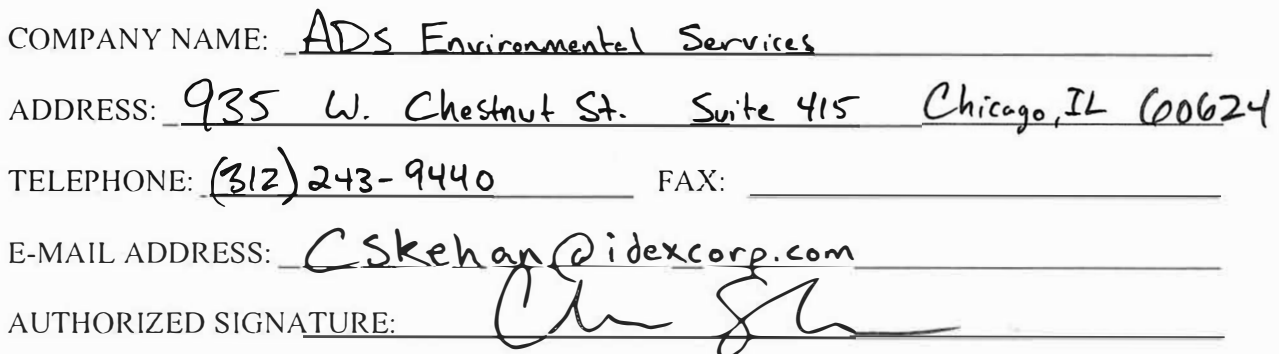 COMPANY NAME: ADS Environmental Services
ADDRESS: 935 W. Chestnut St. Suite 415 Chicago, IL 60624
TELEPHONE: (312) 243-9440 FAX:
E-MAIL ADDRESS: Cskehan@idexcorp.com
AUTHORIZED SIGNATURE: